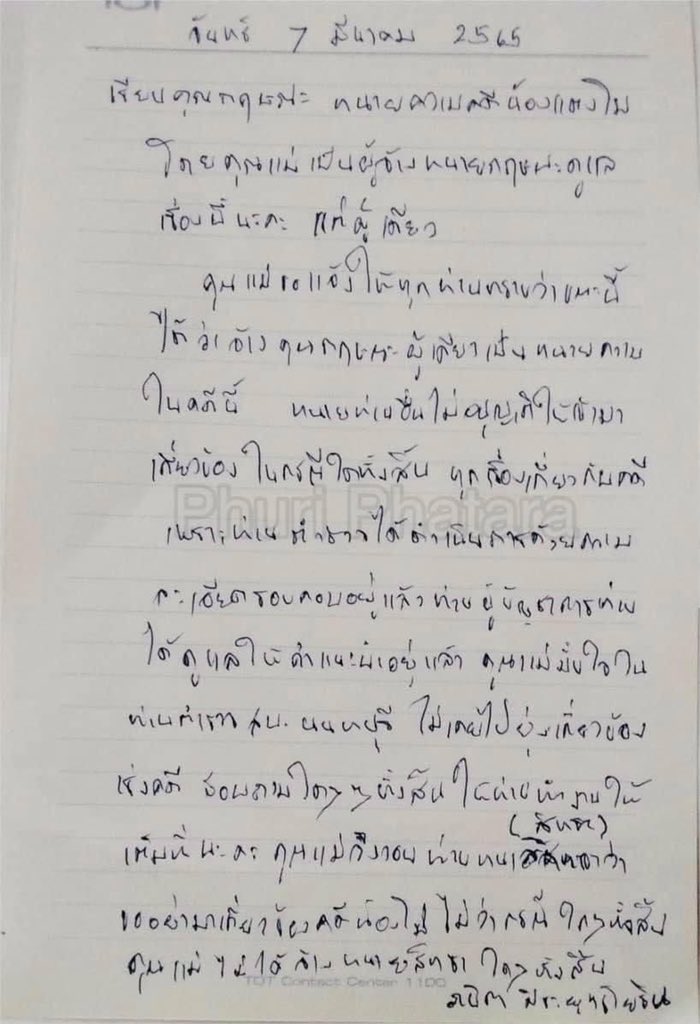 จันทร์ 7 มีนาคม 2565
เรียนคุณกฤษณะ ทนายความคดีน้องแตงโม
โดยคุณแม่เป็นผู้จ้างทนายกฤษณะดูแล
เรื่องนี้นะคะ แต่ผู้เดียว
คุณแม่ขอแจ้งให้ทุกท่านทราบว่าขณะนี้
ได้ว่าจ้างคุณกฤษณะผู้เดียวเป็นทนายความ
ในคดีนี้ ทนายท่านอื่นไม่อนุญาติให้เข้ามา
เกี่ยวข้องในกรณีใดทั้งสิ้น ทุกเรื่องเกี่ยวกับคดี
Phuri Phatara
เพราะท่านตำรวจได้ดำเนินการด้วยความ
ละเอียดรอบคอบอยู่แล้ว ท่านผู้บัญชาการท่าน
ได้ดูแลให้คำแนะนำอยู่แล้ว คุณแม่มั่นใจใน
ท่านตำรวจ สภ.นนทบุรี ไม่เคยไปยุ่งเกี่ยวข้อง
เรื่องคดี สอบถามใดๆ ทั้งสิ้น ให้ท่านทำงานให้
(สิทรา)
เต็มที่นะคะ คุณแม่ถึงวอนท่านทนาย ว่า
ขออย่ามาเกี่ยวข้องคดีน้องโม ไม่ว่ากรณีใดๆ ทั้งสิ้น
คุณแม่ไม่ได้จ้างทนายสิทรา ใดๆ ทั้งสิ้น
TOT Contact Center 1100
ภนิดา ศิระยุทธโยธิน